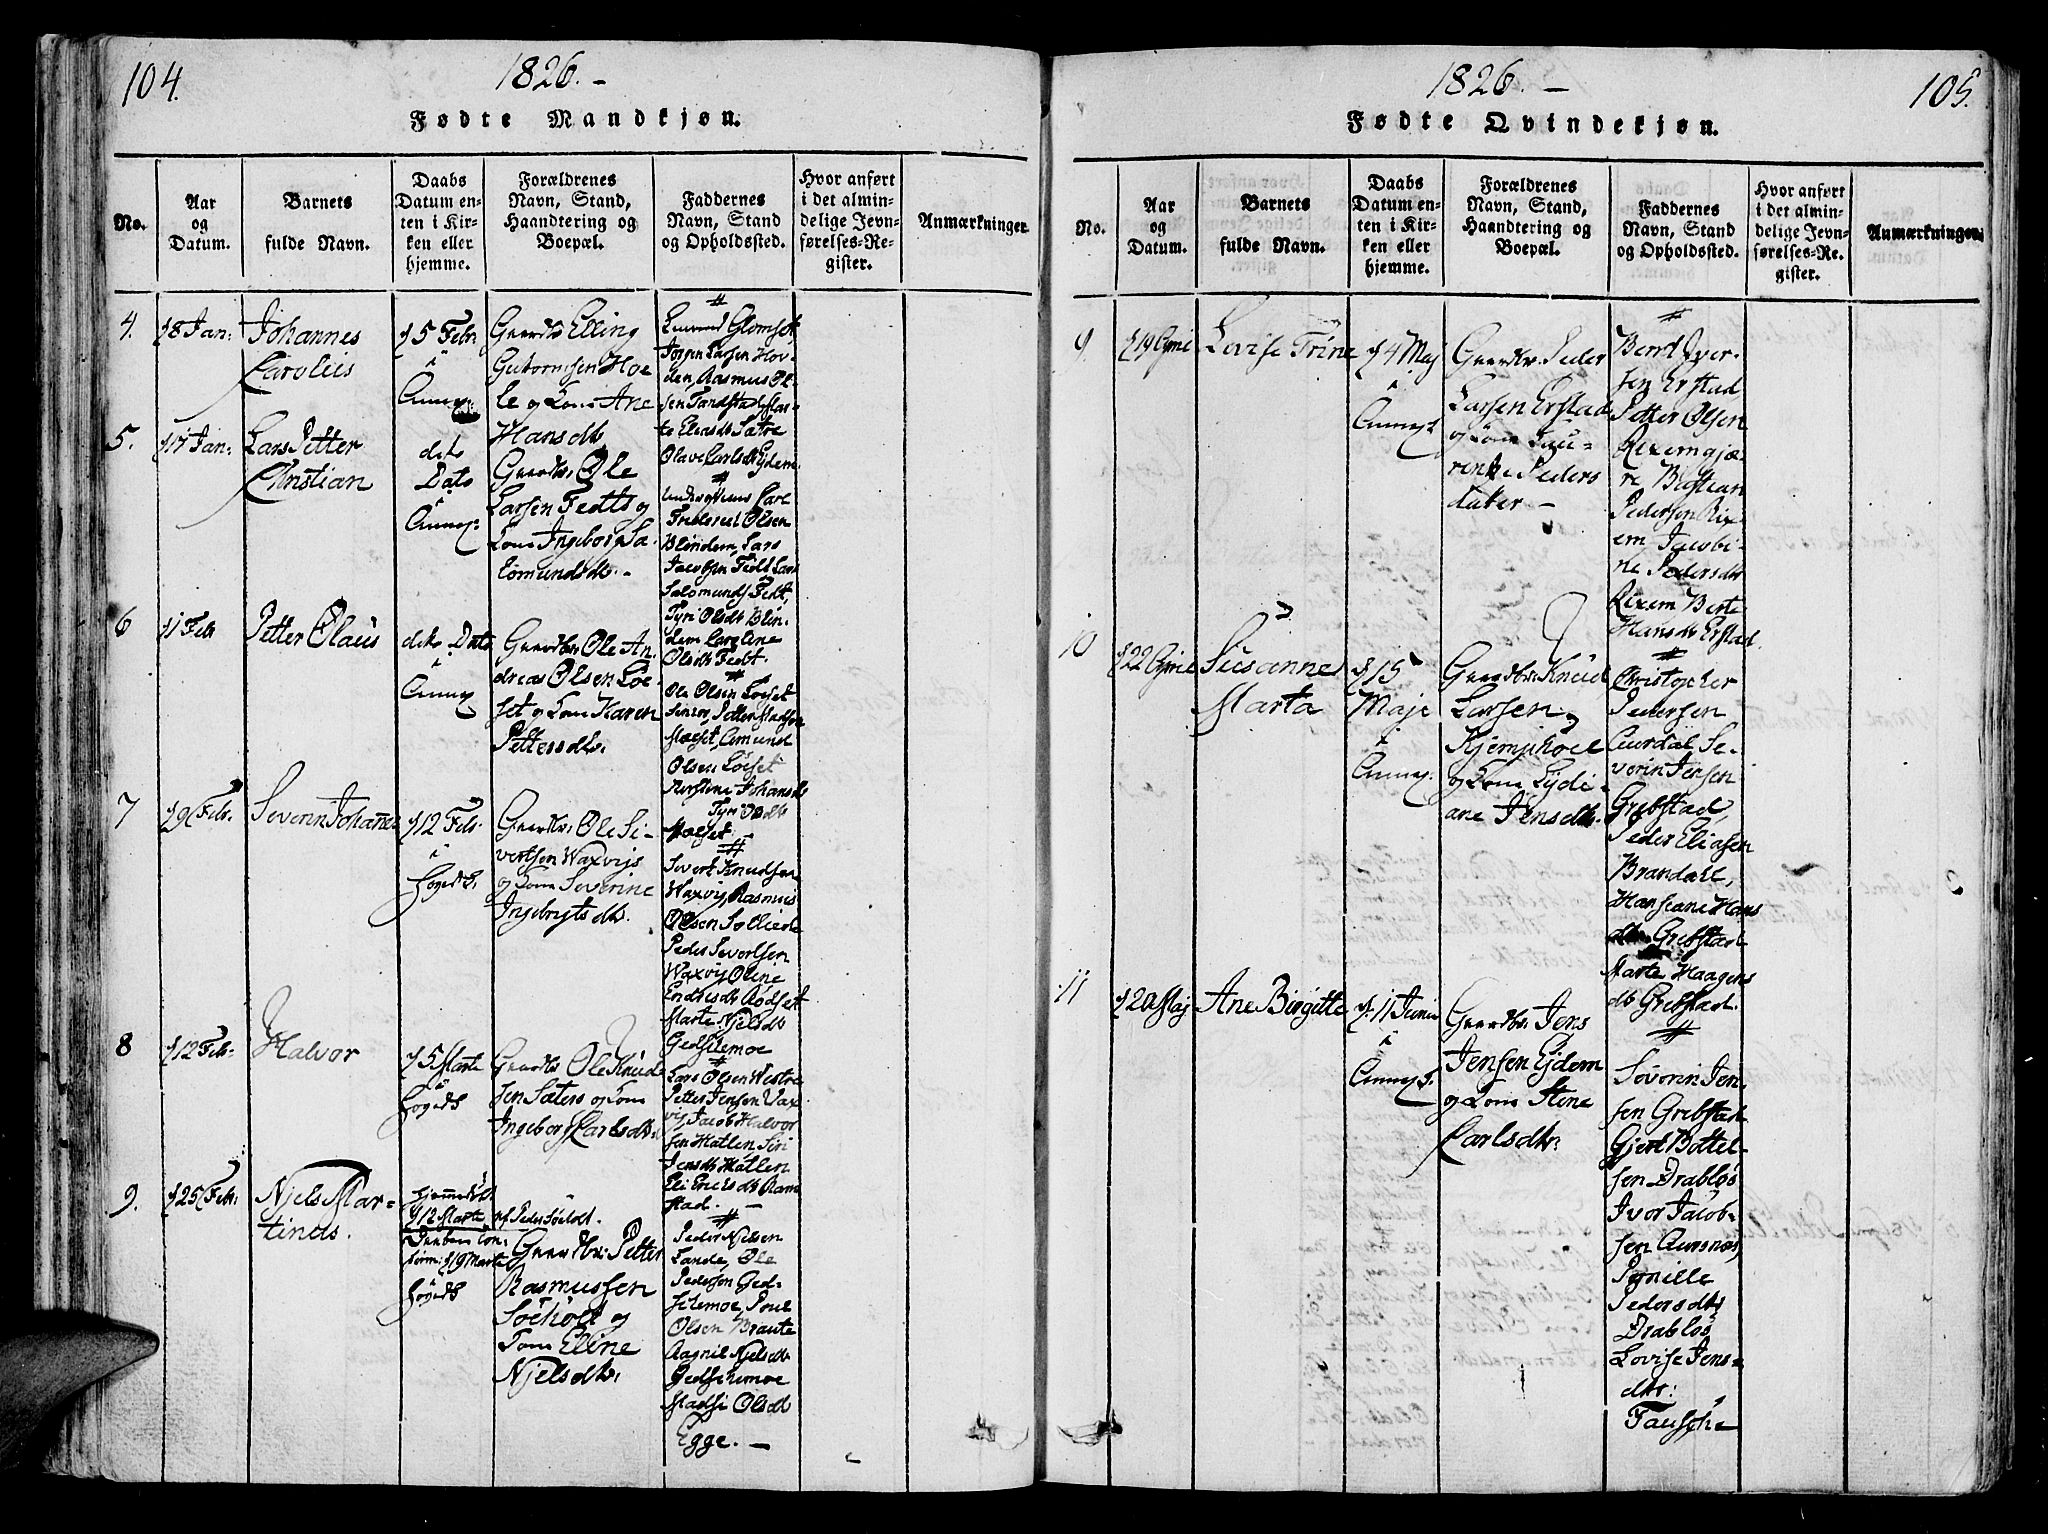 104.
1826.-
Fødte Mandkjøn.
No.
Aar
og
Datum.
Barnets
fulde Navn.
Daabs
Datum en-
ten i Kir-
ken eller
hjemme.
Forældrenes
Navn, Stand,
Haandtering og
Boepæl.
Faddernes
Navn, Stand
og Opholdssted.
Hvor anført
i det almin-
delige Jevn-
førelses-Re-
gister.
Anmærkninger.
4.
18 Jan:
Johannes
Carolus
15 Febr
i
Annex
Gaardbr: Elling
Gutormsen Hoe
le og Kone Ane
Hansdtr
Glomset,
Jørgen Larsen Hov-
den, Rasmus Ol-
sen Tandstad, Mar-
te Eliasdtr Sætre
Olave Carlsdtr Ejdem
5.
17 Jan:
Lars Petter
Christian
dito
Dato
i
Annex:
Gaardbr: Ole
Larsen Fedts og
Kone Ingeborg Sa-
lomundsdtr.-
Carl
Friderich Olsen
Blindem, Lars
Jacobsen Fedt Lars
Salomunds Fedt,
Tyri Olsdtr Blin-
dem Caroline
Olsdtr Fedt.
6
11 Febr
Petter Olaus
dito Dato
i
Annex
Gaardbr: Ole An-
dreas Olsen Løe-
set og Kone Karen
Pettersdtr.
Ole Olsen Løeset
senior, Petter Madsen
Moeset, Amund
Olsen Løeset
Kirstine Johansdtr
Tyri Olsdtr
Moeset.
7
19 Febr.
Severin Johannes
12 Febr.
i
Hogedtr.
Gaardbr: Ole Si-
vertsen Waxvigs
og Kone Severine
Ingebrigtsdtr.
Sivert Knudsen
Waxvig, Rasmus
Olsen
Peder Severtsen
Waxvig Oline
Endresdtr Rødset
Marte Njelsdtr
Gedskemoe
8
12 Febr.
Halvor
15 Marts
i
Gaardbr Ole Knud-
sen Sæters og Kone
Ingeborg Carlsdtr.
Lars Olsen Westre
Petter Jensen Vax
vig, Jacob Halvor
sen Hatlen Siri
Jensdtr Hatlen
Eli Ericksdtr Ram
stad.-
9.
25 Febr.
Njels Mar-
tinus.
hjemmedøbt
12 Marts af Peder Søeholt.
Daaben con-
firm: 19 Marts
i
Gaardbr: Petter
Rasmussen
Søeholt og
Kone Elline
Njelsdtr.
Peder Njelsen
Lande, Ole
Pedersen Ged-
skemoe, Povel
Olsen Braute
Aagnil Njelsdtr
Gedskemoe
Madsi Olsdtr
Egge.-
105.
1826.-
Fødte Qvindekjøn.
No.
Aar
og
Datum.
Barnets
fulde Navn.
Daabs
Datum en-
ten i Kir-
ken eller
hjemme.
Forældrenes
Navn, Stand,
Haandtering og
Boepæl.
Faddernes
Navn, Stand
og Opholdssted.
Hvor anført
i det almin-
delige Jevn-
førelses-Re-
gister.
Anmærkninger.
9.
Lovise Trine
14 Maj
i
Annex
Gaardbr. Peder
Larsen Erstad
og Kone Lau-
rentze Peders
datter-
Bernt Iver-
sen Erstad
Petter Olsen
Rexemgjæ-
re Bastian
Pedersen Rix-
em, Jacobi-
ne Pedersdtr
Rexem Berte
Hansdtr Erstad.
10
Susanne
Marta
15
Maji
i
Annex.
Gaardbr: Knud
Larsen
Kjemphoel
og Kone Lydi-
ane Jensdtr.
Christopher
Pedersen
Auerdal Se-
verin Jensen
Grebstad,
Peder Eliasen
Brandahl,
Hanseane Hans
dtr Grebstad
Marte Haagens
dtr Grebstad.
11
20 Maj
Ane Birgitte
11 Junii
i
Annex.
Gaardbr. Jens
Jensen Ejdem
og Kone Stene
Carlsdtr.
Severin Jen-
sen Grebstad
Gjert Bottel-
sen Drabløs
Iver Jacob-
sen Aursnæs,
Pernille
Pedersdtr
Drabløs
Lovise Jens-
dtr:
Fauske